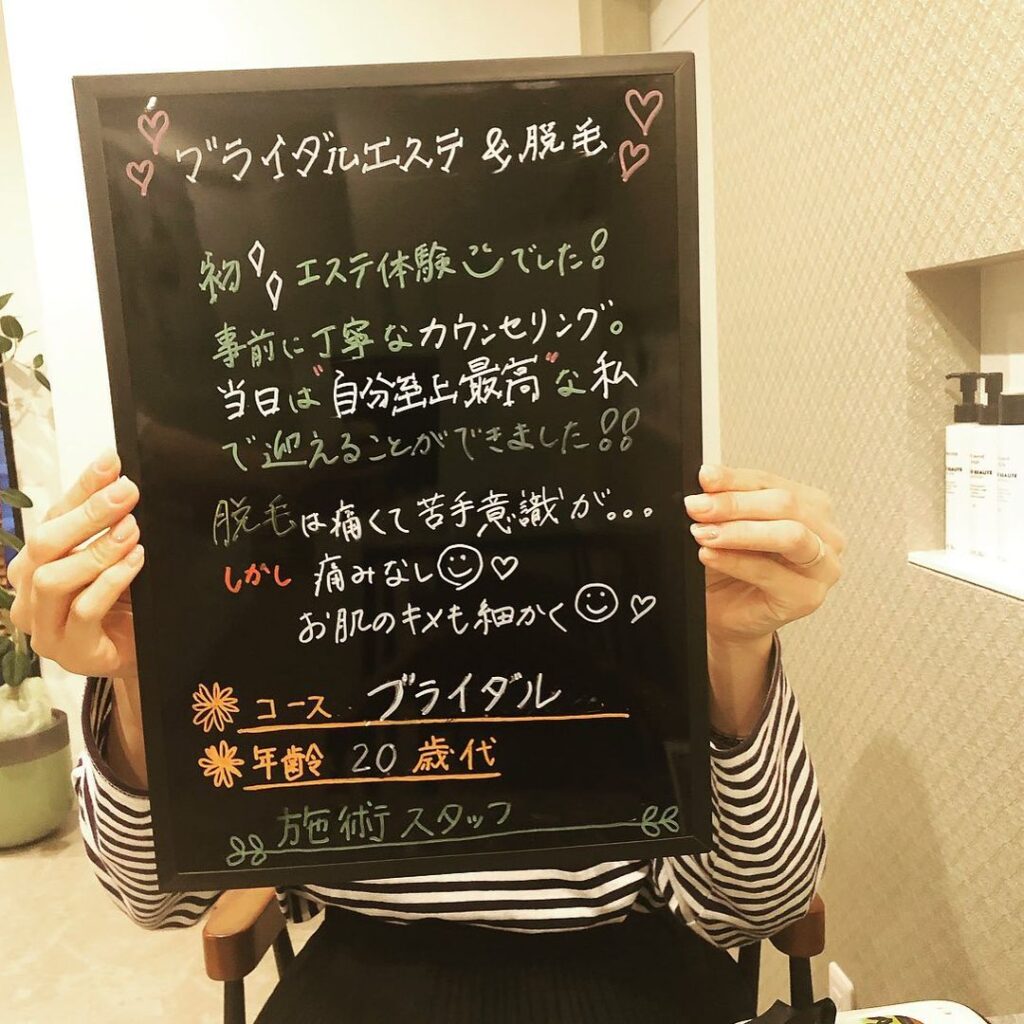 ブライダルエステ & 脱毛
初 エステ体験でした!
事前に丁寧なカウンセリング。
当日は"自分至上最高"な私
で迎えることができました!!
脱毛は痛くて苦手意識が。。。
しかし 痛みなし
お肌のキメも細かく
コース ブライダル
年齢 20 歳代
施術スタッフ